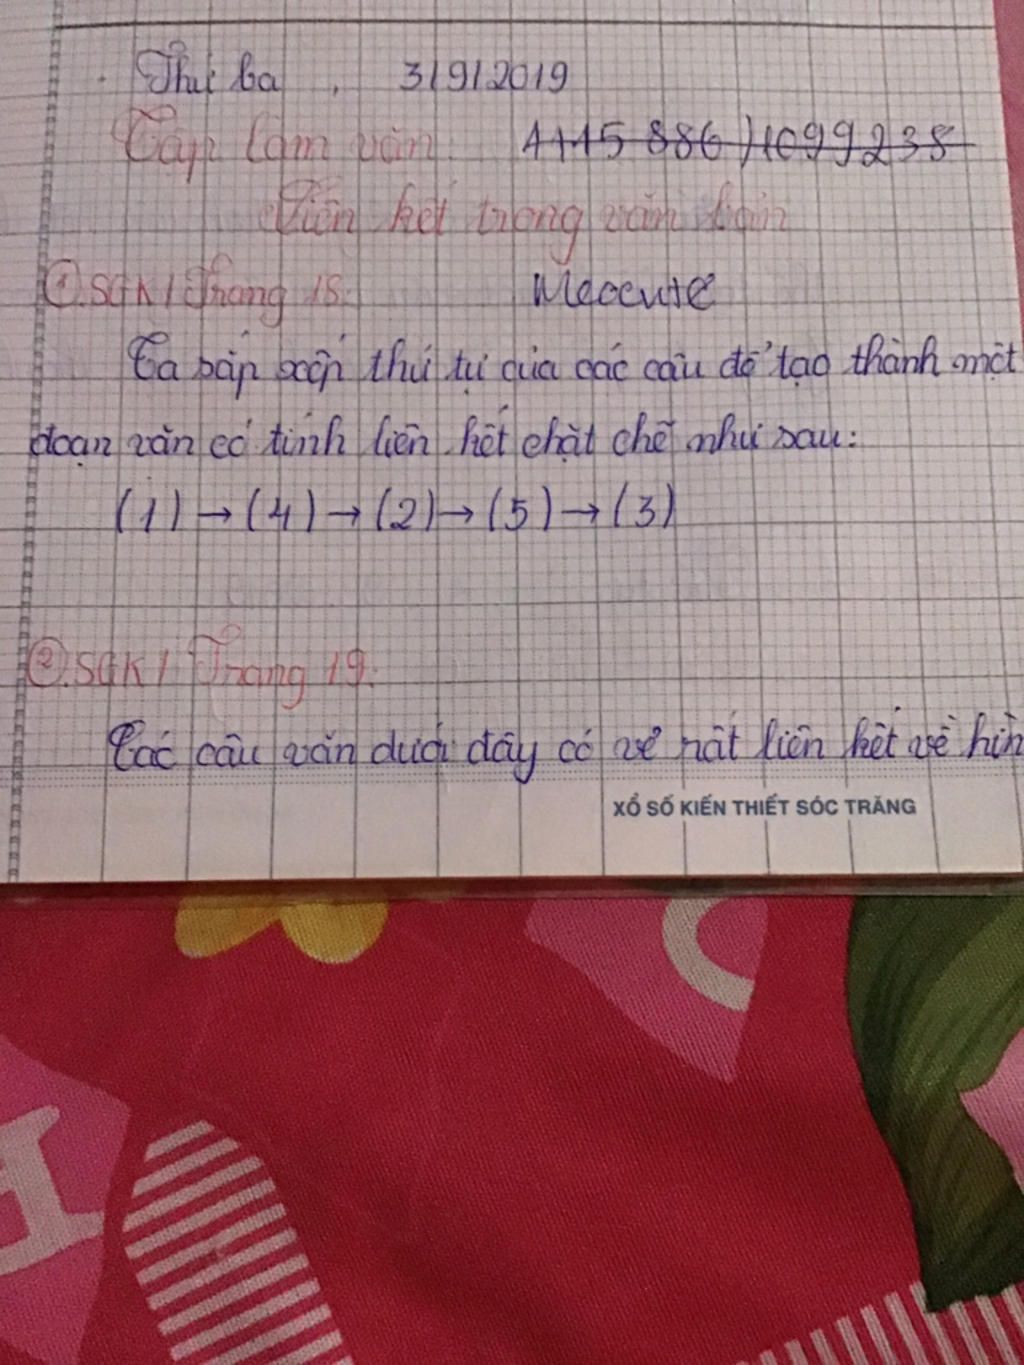 Thứ ba , 3/9/2019
Tập làm văn
Liên kết trong văn bản
①.SGK / Trang 18.
Meocute
Ta sắp xếp thứ tự của các câu để tạo thành một
đoạn văn có tính liên kết chặt chẽ như sau:
(1) → (4) → (2) → (5) → (3)
②.SGK / Trang 19.
Các câu văn dưới đây có vẻ rất liên kết về hìn
XỔ SỐ KIẾN THIẾT SÓC TRĂNG